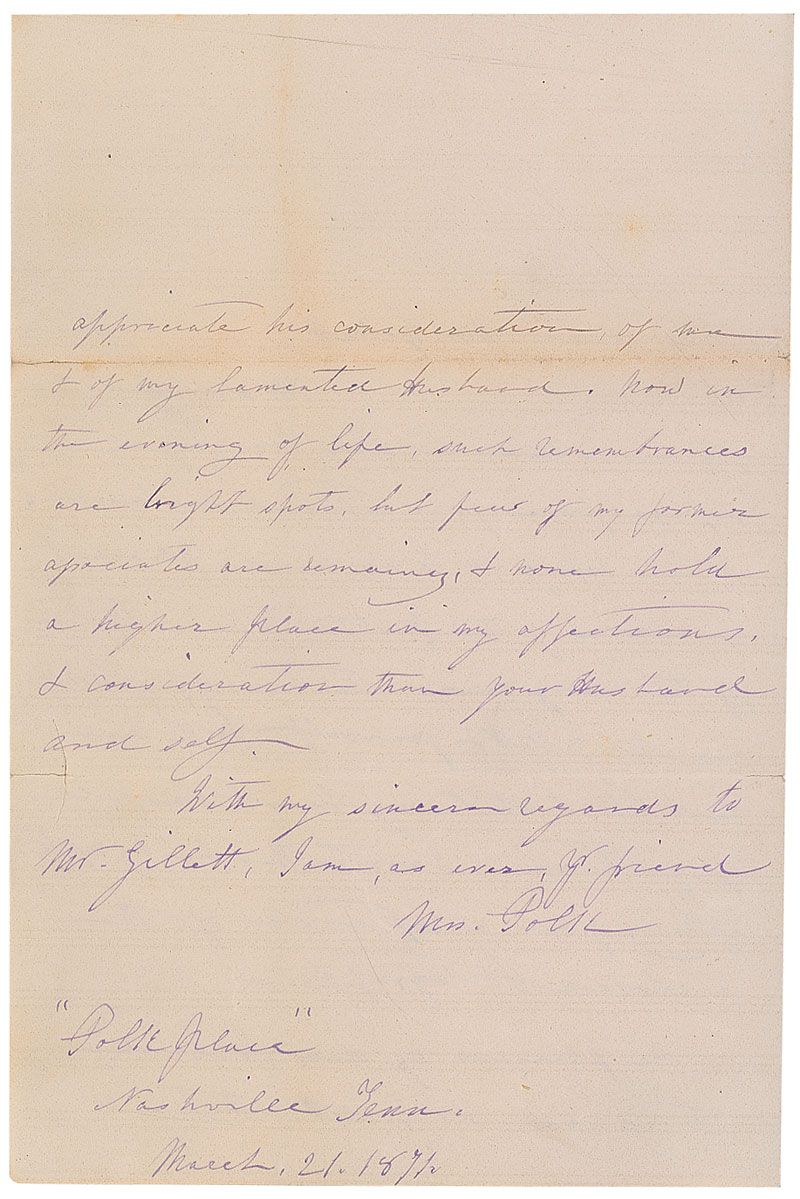 appreciate his consideration, of me
& of my lamented Husband. Now in
the evening of life, such remembrances
are bright spots. but few of my former
associates are remaining, & none hold
a higher place in my affections,
& consideration than your Husband
and self.
With my sincere regards to
Mr. Gillett, I am, as ever, Yr. friend
Mrs. Polk
"Polk place"
Nashville Tenn.
March. 21. 1871.